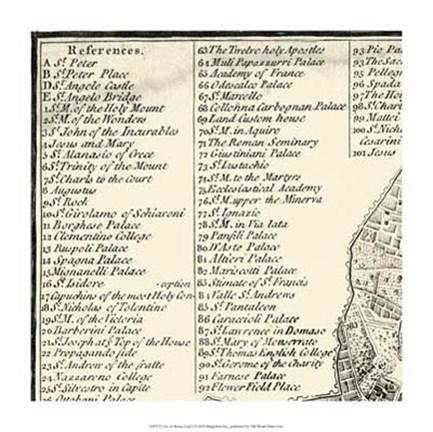 References.
A St. Peter
B St. Peter Place
D St. Angelo Castle
E St. Angelo Bridge
1 St. M. of the Holy Mount
2 St. M. of the Wonders
3 St. John of the Incurables
4 Jesus and Mary
5 St. Atanasio of Grece
6 St. Trinity of the Mount
7 St. Charls to the Court
8 Augustus
9 St. Rock
10 St. Girolamo of Schiaconi
11 Borghase Palace
12 Clementino College
13 Ruspoli Palace
14 Spagna Palace
15 Mignanelli Palace
16 St. Isidore -ception
17 Capuchins of the most Holy Con-
18 St. Nicholas of Tolentino
19 St. M. of the Victoria
20 Barberini Palace
21 St. Joseph at ye Top of the House
22 Propagando fide
23 St. Andrew of the fratte
24 Nazzareno College
25 St. Silvestro in Capite
Palace
63 The Twelve holy Apostles
64 Muti Papazzurri Palace
65 Academy of France
66 Odescalco Palace
67 St. Marcello
68 Collonna Carbognan Palace
69 Land Custom house
70 St. M. in Aquiro
71 The Roman Seminary
72 Giustiniani Palace
73 St. Eustachio
74 St. M. to the Martyrs
75 Ecclesiastical Academy
76 St. M. upper the Minerva
77 St. Ignazio
78 St. M. in Via lata
79 Panfili Palace
80 D'Aste Palace
81 Altieri Palace
82 Mariscotti Palace
83 Stimate of St. Francis
84 Valle St. Andrews
85 St. Pantaleon
86 Caraccioli Palace
87 St. Lawrence in Domaso
88 St. Mary of Monserrato
89 St. Thomas English College
90 St. Gerome of the Charity
91 Farnese Palace
92 Flower Field Place
93 Pio Pa
94 The Sac
95 Pellegr
96 Spada
97 The Ho
98 St. Char
99 Mattei
100 St. Nich
Cesarini
101 Jesus